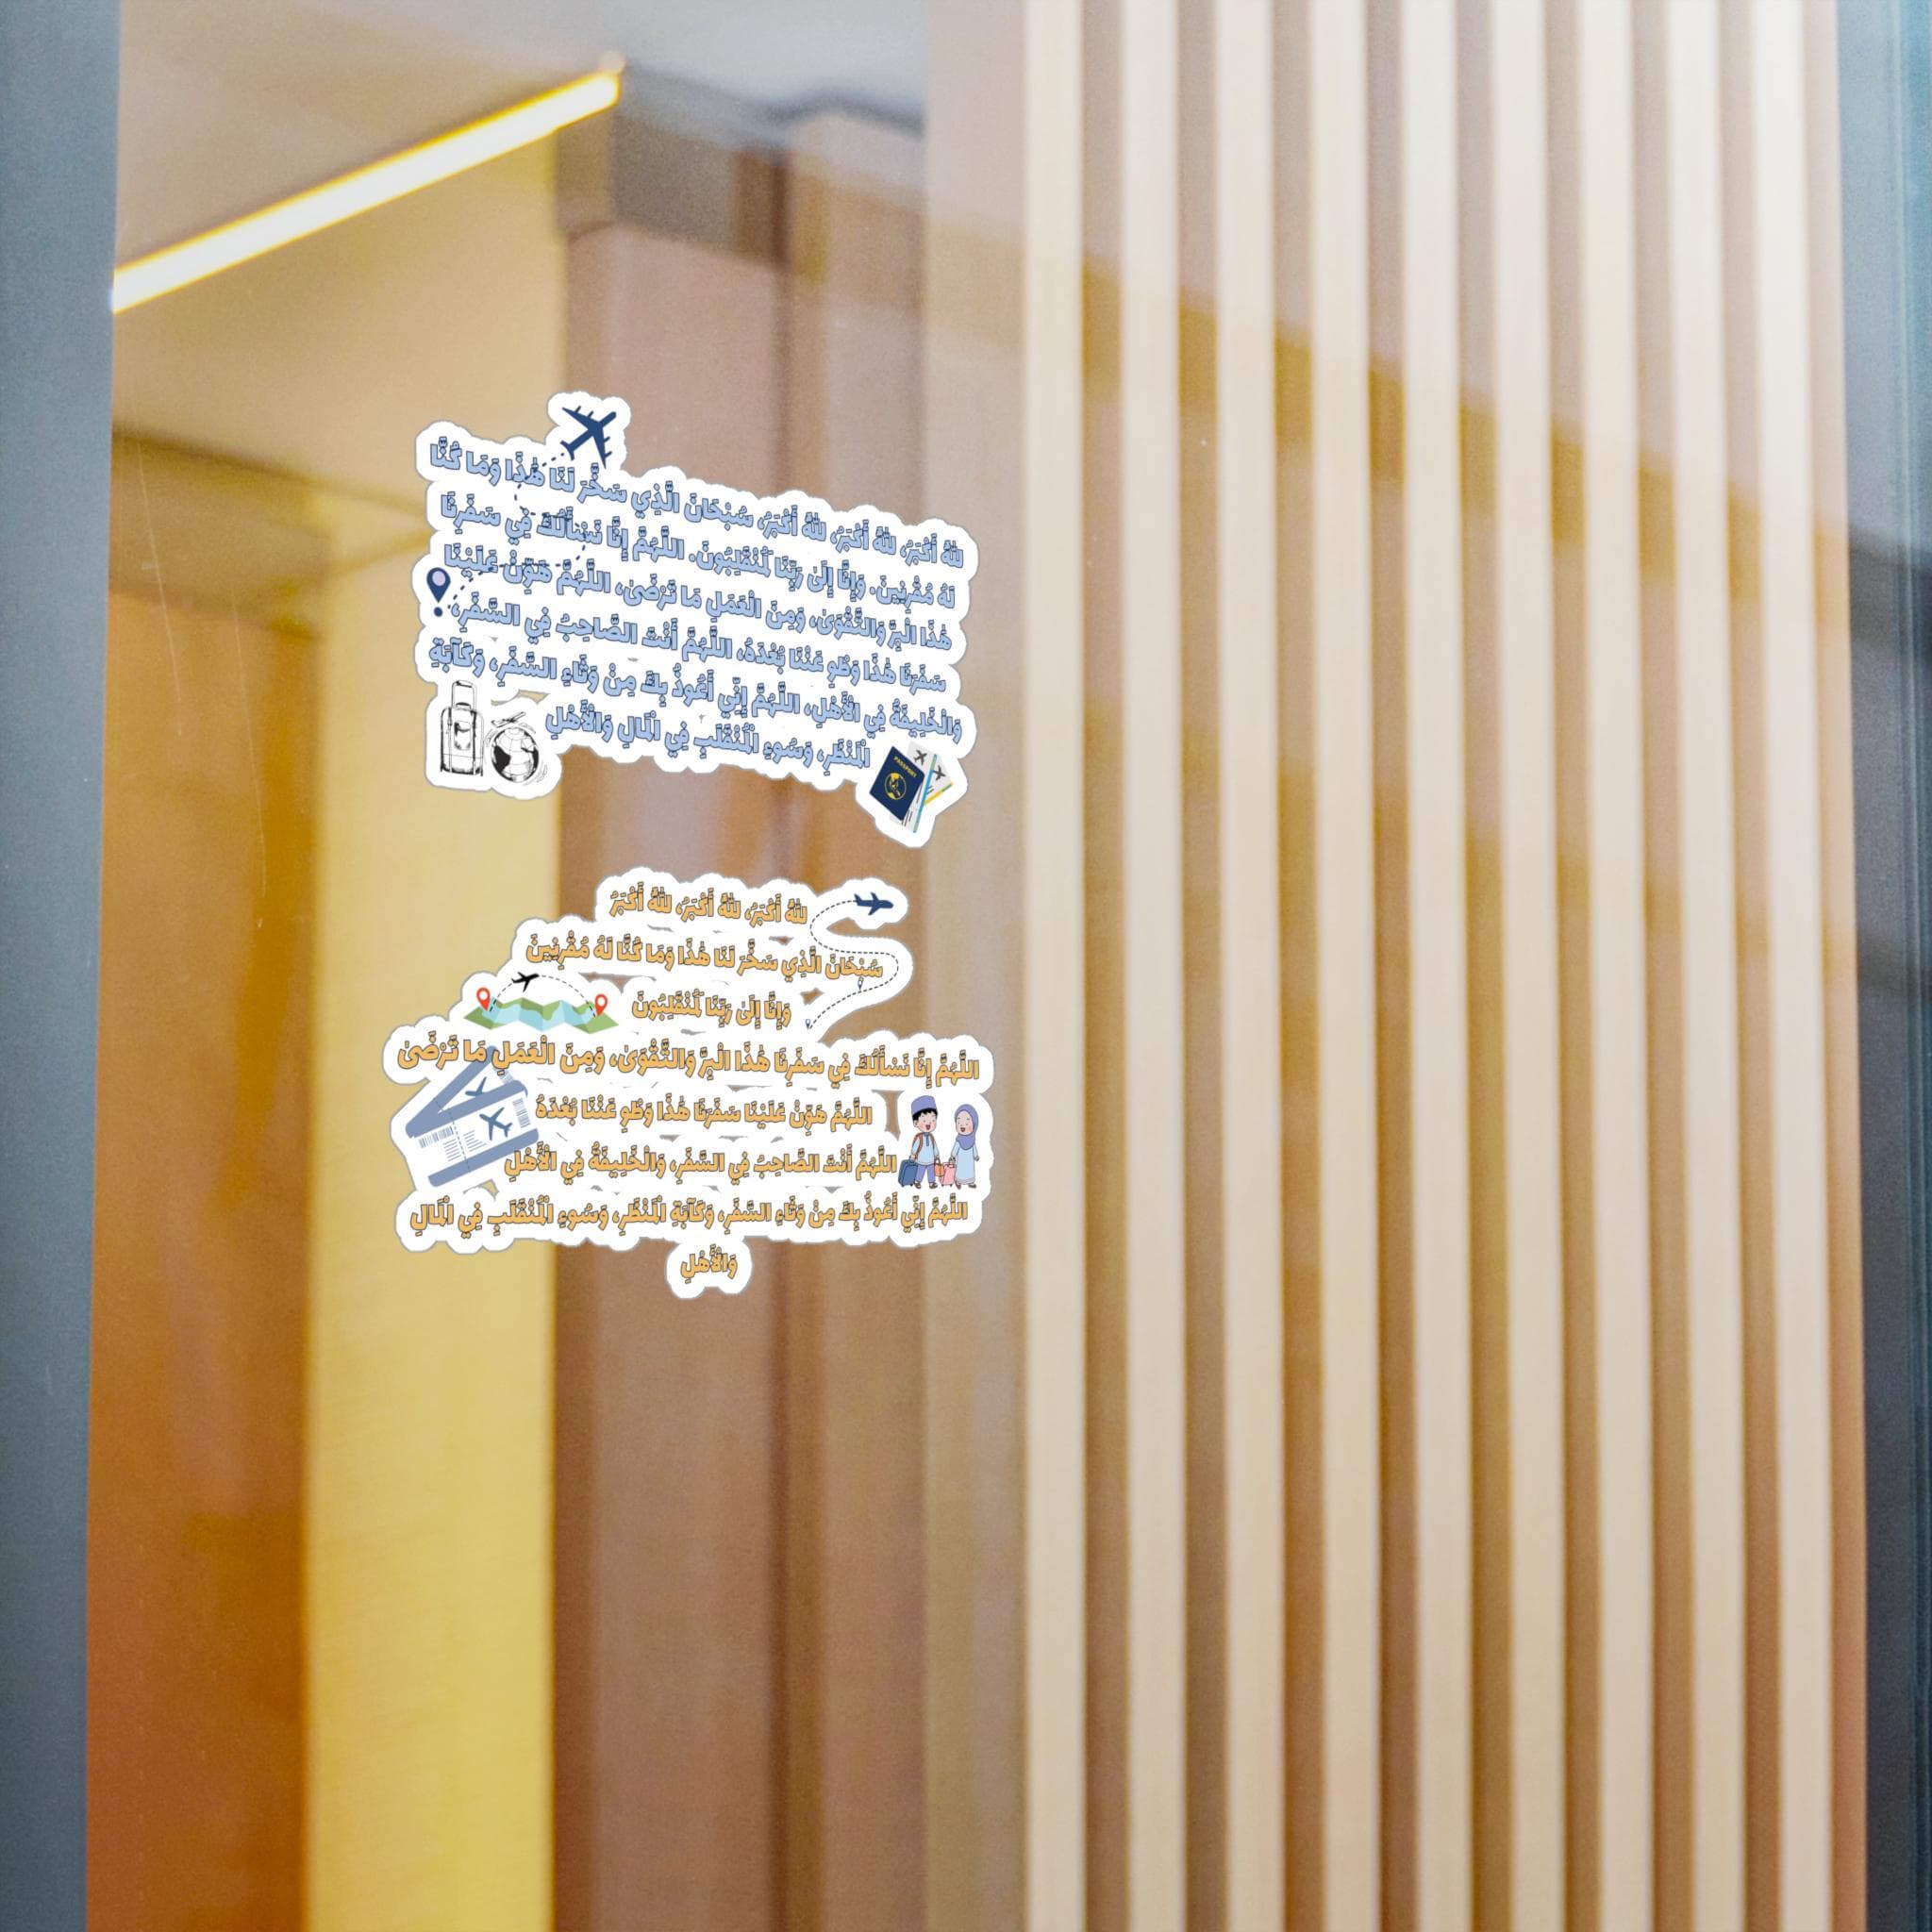 للهُ أَكْبَرُ، للهُ أَكْبَرُ، للهُ أَكْبَرُ، سُبْحَانَ الَّذِي سَخَّرَ لَنَا هَٰذَا وَمَا كُنَّا
لَهُ مُقْرِنِينَ. وَإِنَّا إِلَىٰ رَبِّنَا لَمُنْقَلِبُونَ. اللَّهُمَّ إِنَّا نَسْأَلُكَ فِي سَفَرِنَا
هَٰذَا الْبِرَّ وَالتَّقْوَىٰ، وَمِنَ الْعَمَلِ مَا تَرْضَىٰ، اللَّهُمَّ هَوِّنْ عَلَيْنَا
سَفَرَنَا هَٰذَا وَطْوِ عَنْنَا بُعْدَهُ، اللَّهُمَّ أَنْتَ الصَّاحِبُ فِي السَّفَرِ،
وَالْخَلِيفَةُ فِي الْأَهْلِ، اللَّهُمَّ إِنِّي أَعُوذُ بِكَ مِنْ وَثَاءِ السَّفَرِ، وَكَآبَةِ
الْمَنْظَرِ، وَسُوءِ الْمُنْقَلَبِ فِي الْمَالِ وَالْأَهْلِ
PASSPORT
للهُ أَكْبَرُ، للهُ أَكْبَرُ، للهُ أَكْبَرُ
سُبْحَانَ الَّذِي سَخَّرَ لَنَا هَٰذَا وَمَا كُنَّا لَهُ مُقْرِنِينَ
وَإِنَّا إِلَىٰ رَبِّنَا لَمُنْقَلِبُونَ
اللَّهُمَّ إِنَّا نَسْأَلُكَ فِي سَفَرِنَا هَٰذَا الْبِرَّ وَالتَّقْوَىٰ، وَمِنَ الْعَمَلِ مَا تَرْضَىٰ
اللَّهُمَّ هَوِّنْ عَلَيْنَا سَفَرَنَا هَٰذَا وَطْوِ عَنْنَا بُعْدَهُ
اللَّهُمَّ أَنْتَ الصَّاحِبُ فِي السَّفَرِ، وَالْخَلِيفَةُ فِي الْأَهْلِ
اللَّهُمَّ إِنِّي أَعُوذُ بِكَ مِنْ وَثَاءِ السَّفَرِ، وَكَآبَةِ الْمَنْظَرِ، وَسُوءِ الْمُنْقَلَبِ فِي الْمَالِ
وَالْأَهْلِ